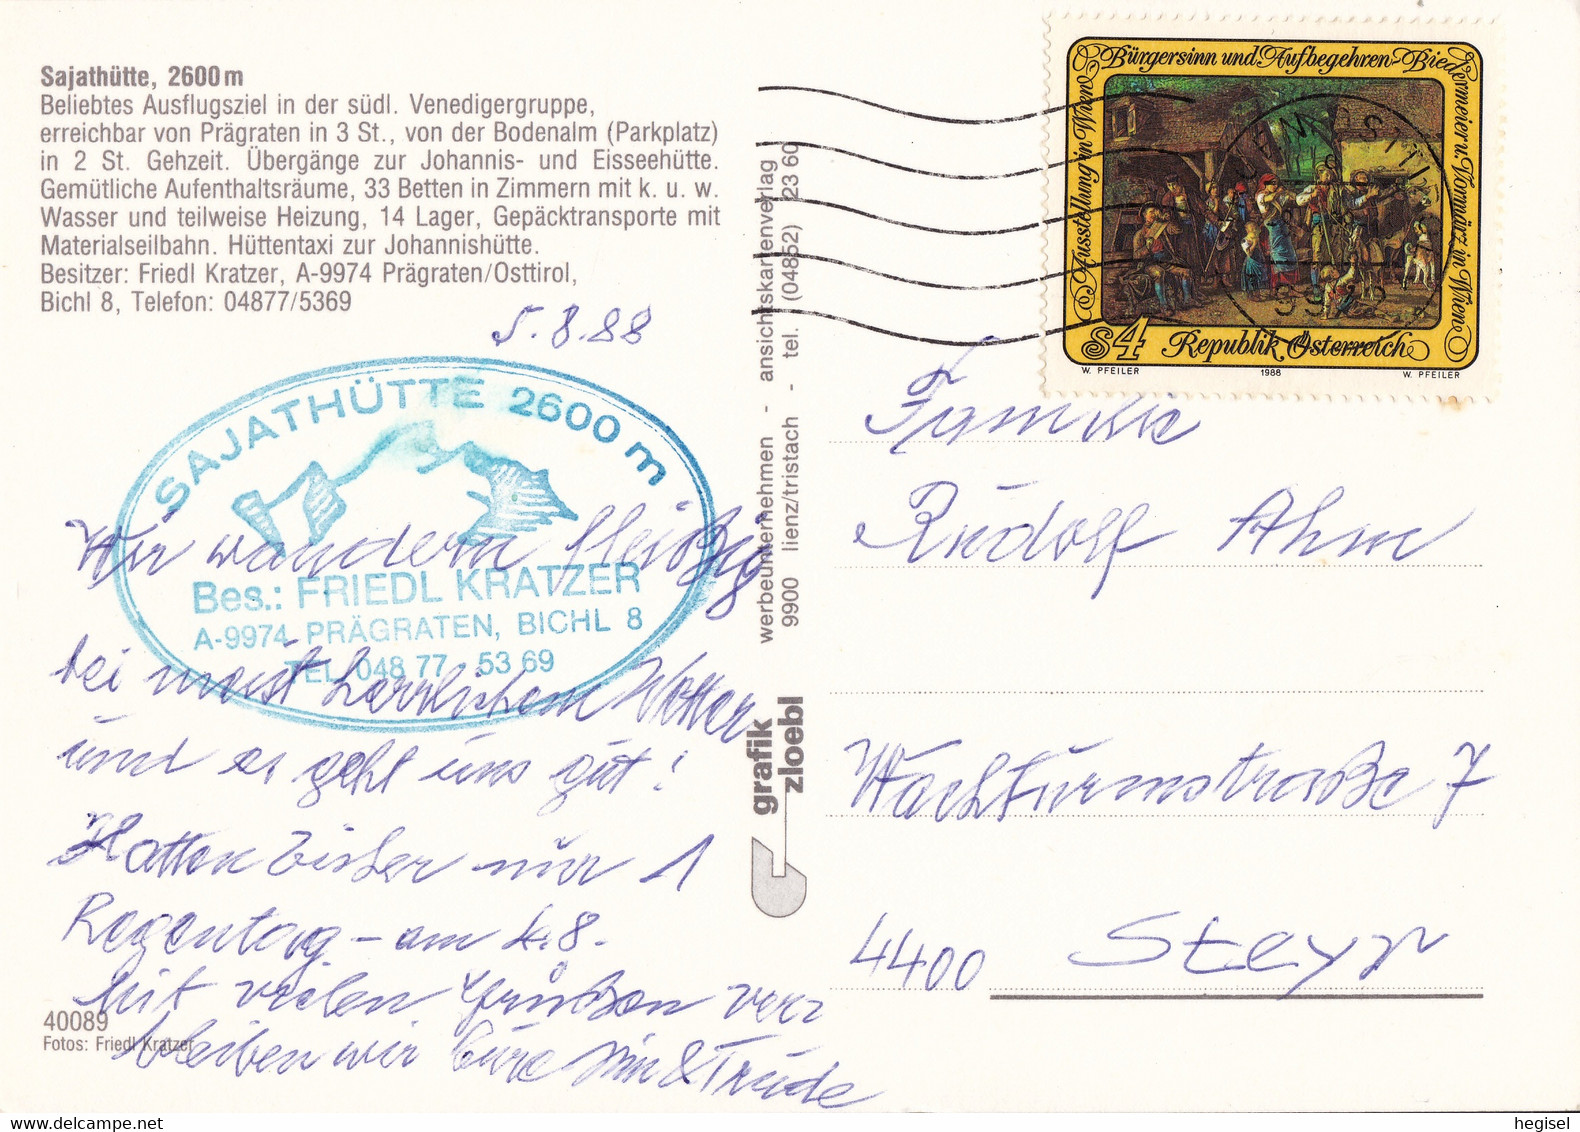 Sajathütte, 2600 m
Beliebtes Ausflugsziel in der südl. Venedigergruppe,
erreichbar von Prägraten in 3 St., von der Bodenalm (Parkplatz)
in 2 St. Gehzeit. Übergänge zur Johannis- und Eisseehütte.
Gemütliche Aufenthaltsräume, 33 Betten in Zimmern mit k. u. w.
Wasser und teilweise Heizung, 14 Lager, Gepäcktransporte mit
Materialseilbahn. Hüttentaxi zur Johannishütte.
Besitzer: Friedl Kratzer, A-9974 Prägraten/Osttirol,
Bichl 8, Telefon: 04877/5369
5.8.88
SAJATHÜTTE 2600 m
Bes.: FRIEDL KRATZER
A-9974 PRÄGRATEN, BICHL 8
TEL. 048 77 53 69
Wir wandern fleißig
bei meist herrlichem Wetter
und es geht uns gut!
Hatten bisher nur 1
Regentag - am 4.8.
Mit vielen Grüßen ver
bleiben wir Eure & Trude
40089
Fotos: Friedl Kratzer
werbeunternehmen - ansichtskartenverlag
9900 lienz/tristach - tel. (04852) 23 60
grafik
zloebl
Ausstellung in Wien Bürgersinn und Aufbegehren - Biedermeier u. Vormärz in Wien
S4 Republik Österreich
W. PFEILER 1988 W. PFEILER
Familie
Rudolf Ahm
Wachturmstraße 7
4400 Steyr
hegisel